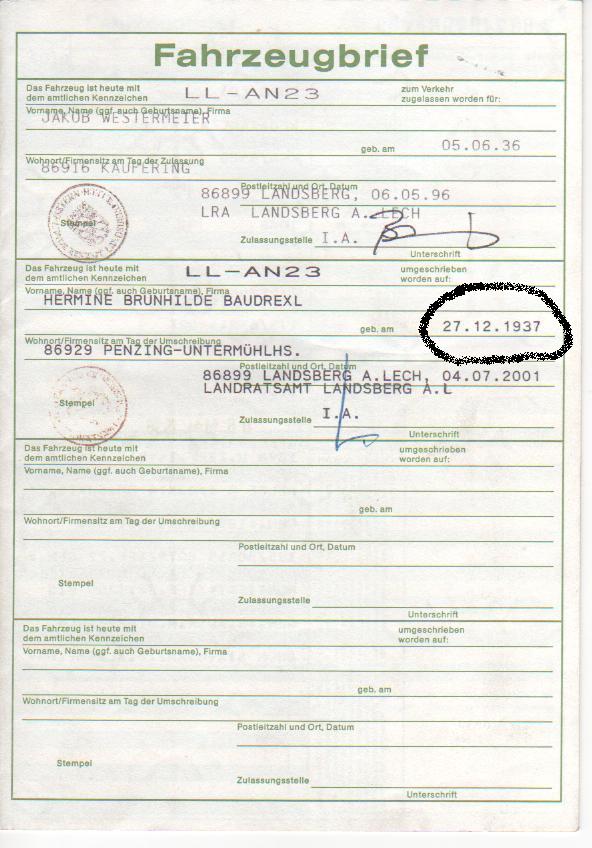 Fahrzeugbrief
Das Fahrzeug ist heute mit
dem amtlichen Kennzeichen
LL-AN23
zum Verkehr
zugelassen worden für:
Vorname, Name (ggf. auch Geburtsname), Firma
JAKOB WESTERMEIER
geb. am 05.06.36
Wohnort/Firmensitz am Tag der Zulassung
86916 KAUFERING
Postleitzahl und Ort, Datum
86899 LANDSBERG, 06.05.96
LRA LANDSBERG A. LECH
Stempel
Zulassungsstelle I.A.
Unterschrift
Das Fahrzeug ist heute mit
dem amtlichen Kennzeichen
LL-AN23
umgeschrieben
worden auf:
Vorname, Name (ggf. auch Geburtsname), Firma
HERMINE BRUNHILDE BAUDREXL
geb. am 27.12.1937
Wohnort/Firmensitz am Tag der Umschreibung
86929 PENZING-UNTERMÜHLHS.
Postleitzahl und Ort, Datum
86899 LANDSBERG A.LECH, 04.07.2001
LANDRATSAMT LANDSBERG A.L
Stempel
Zulassungsstelle I.A.
Unterschrift
Das Fahrzeug ist heute mit
dem amtlichen Kennzeichen
umgeschrieben
worden auf:
Vorname, Name (ggf. auch Geburtsname), Firma
geb. am
Wohnort/Firmensitz am Tag der Umschreibung
Postleitzahl und Ort, Datum
Stempel
Zulassungsstelle
Unterschrift
Das Fahrzeug ist heute mit
dem amtlichen Kennzeichen
umgeschrieben
worden auf:
Vorname, Name (ggf. auch Geburtsname), Firma
geb. am
Wohnort/Firmensitz am Tag der Umschreibung
Postleitzahl und Ort, Datum
Stempel
Zulassungsstelle
Unterschrift